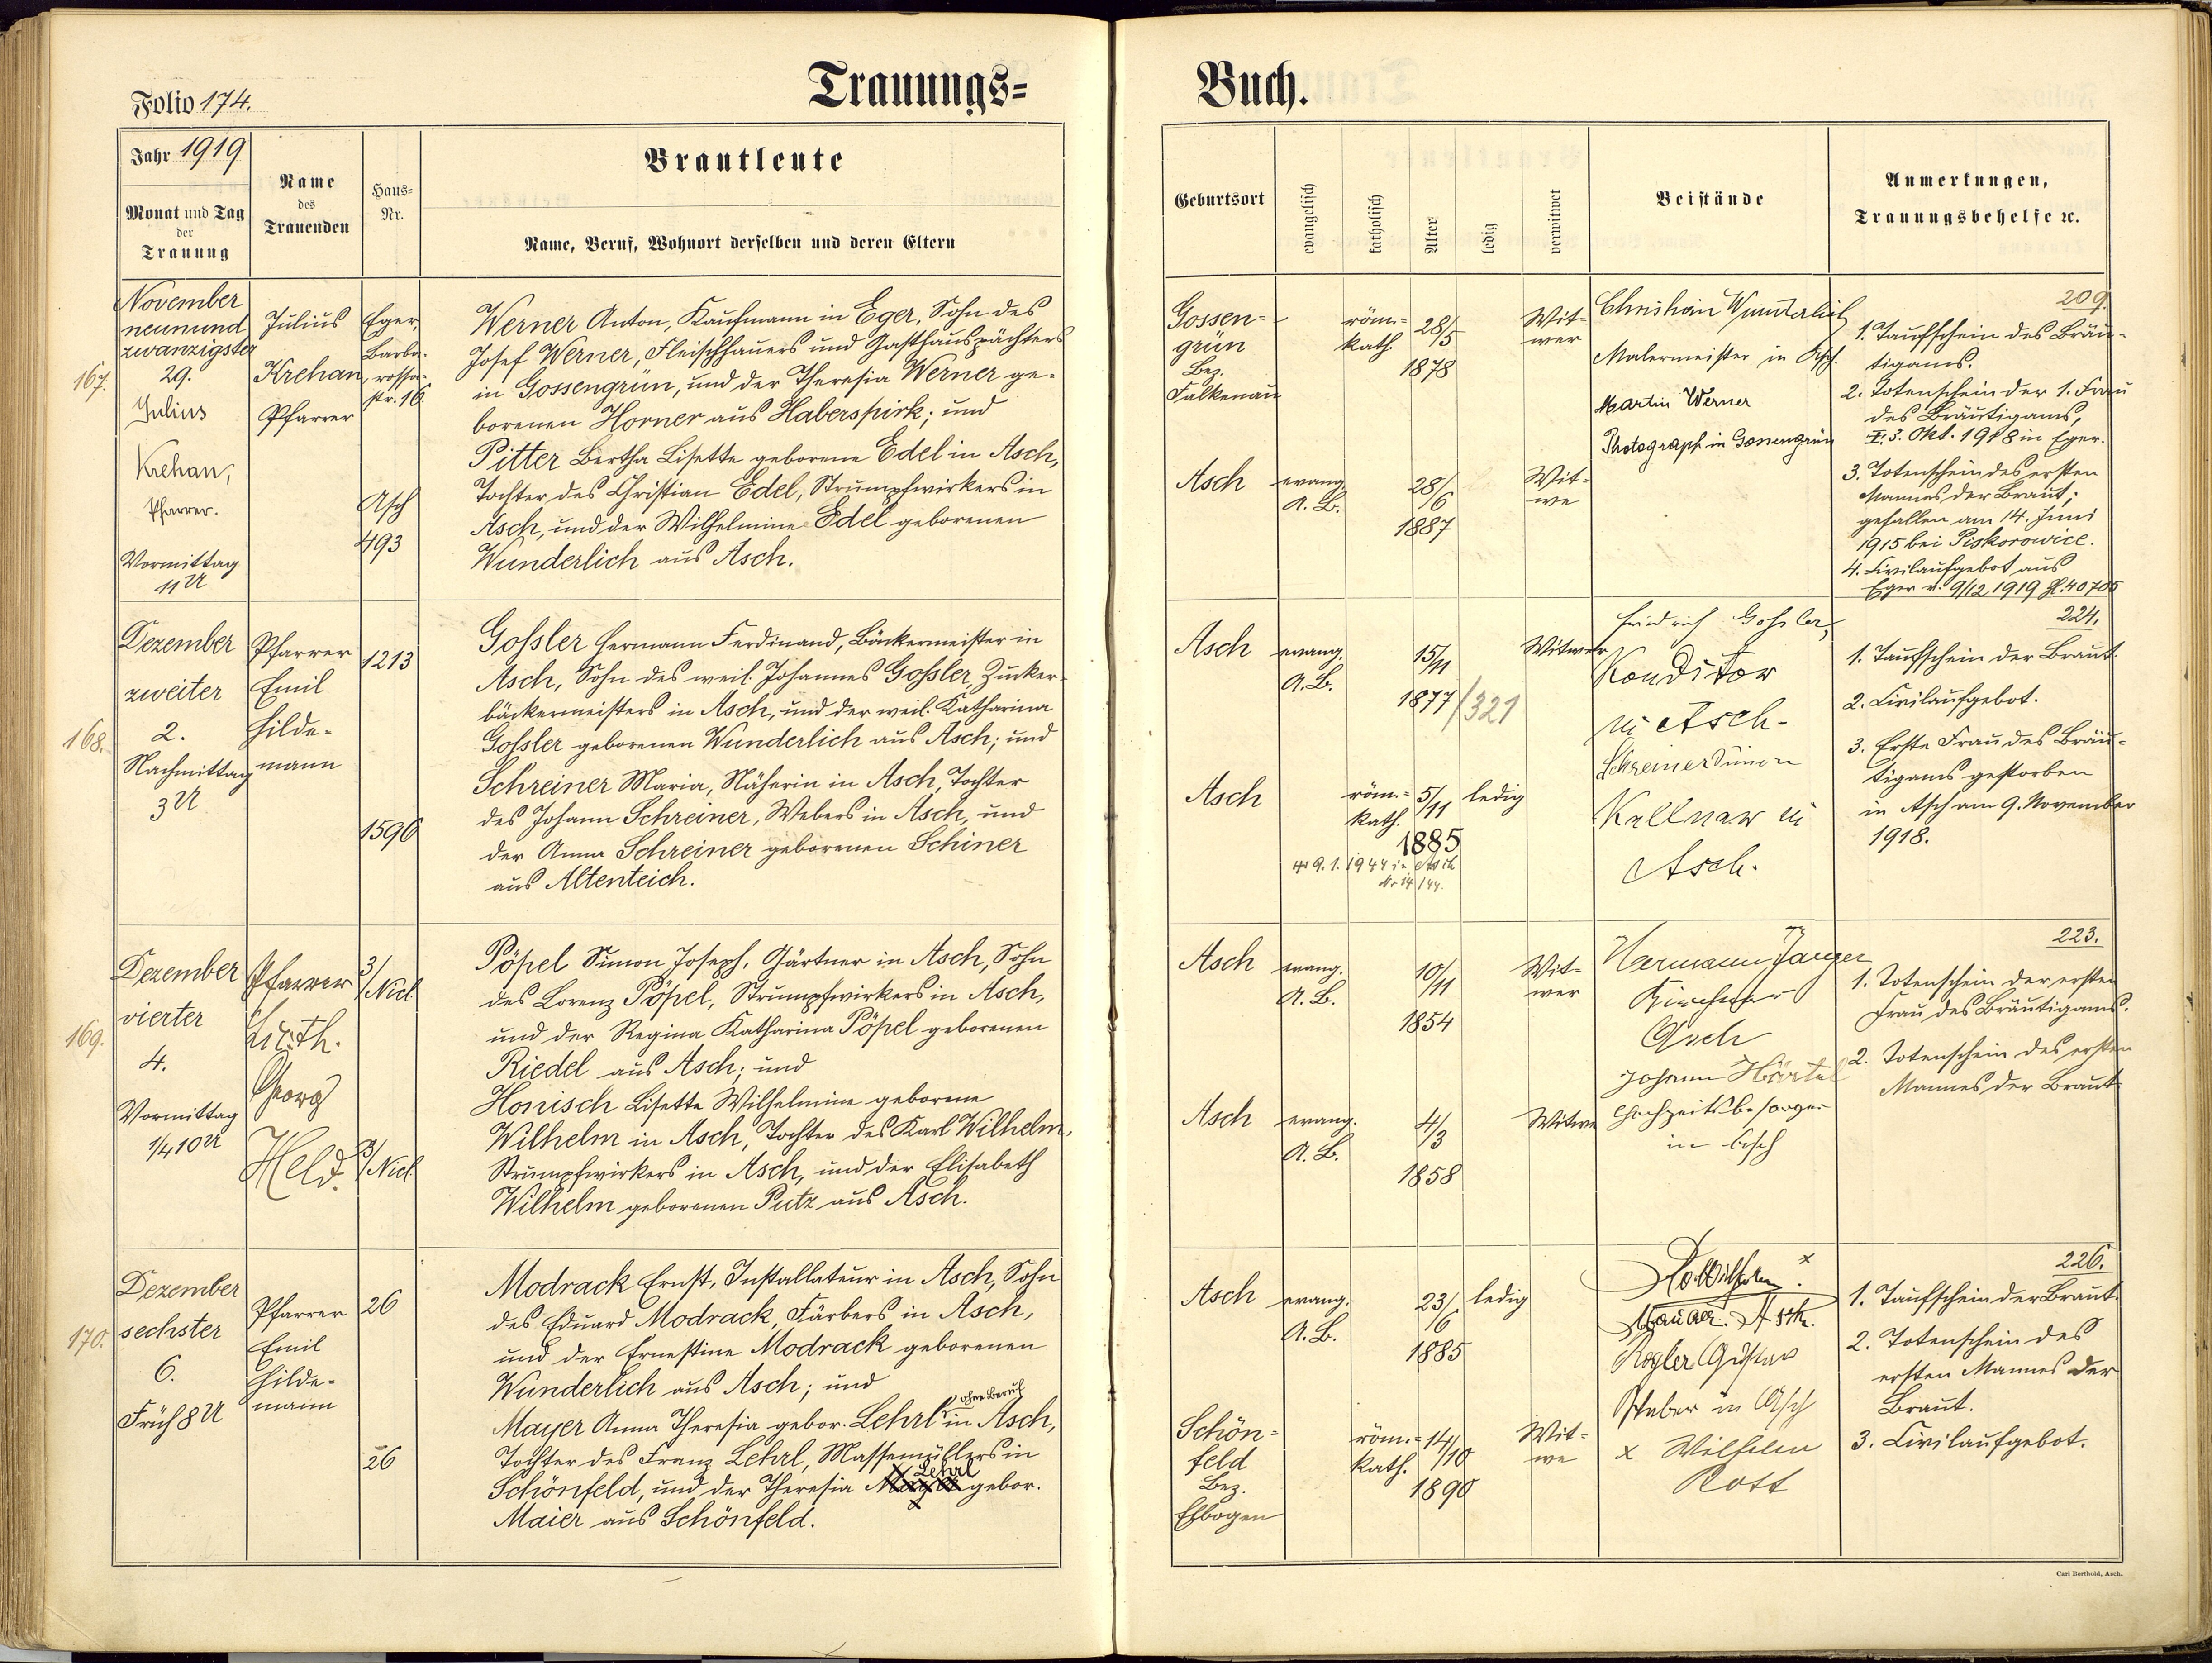 Trauungs=
Buch.
Folio 174.
Jahr 1919
Monat und Tag
der
Trauung
Name
des
Trauenden
Haus=
Nr.
Brautleute
Name, Beruf, Wohnort derselben und deren Eltern
Geburtsort
evangelisch
katholisch
Alter
ledig
verwitwet
Beistände
Anmerkungen,
Trauungsbehelfe ꝛc.
167.
November
neunund
zwanzigster
29.
Julius
Krehan,
Pfarrer.
Vormittag
11 U
Julius
Krehan,
Pfarrer
Eger,
Barba-
rossa-
str. 16.
Asch
493
Werner Anton, Kaufmann in Eger, Sohn des
Josef Werner, Fleischhauers und Gasthauspächters
in Gossengrün, und der Theresia Werner ge-
borenen Horner aus Haberspirk; und
Pitter Bertha Lisette geborene Edel in Asch,
Tochter des Christian Edel, Strumpfwirkers in
Asch, und der Wilhelmine Edel geborenen
Wunderlich aus Asch.
Gossen-
grün
Bez.
Falkenau
röm.=
kath.
28/5
1878
Wit-
wer
Asch
evang.
A. B.
28/6
1887
Wit-
we
Christian Wunderlich
Malermeister in Asch.
Martin Werner
Photograph in Gossengrün
209.
1. Taufschein des Bräu-
tigams.
2. Totenschein der 1. Frau
des Bräutigams,
3. Okt. 1918 in Eger.
3. Totenschein des ersten
Mannes der Braut;
gefallen am 14. Juni
1915 bei Piskorowice.
4. Civilaufgebot aus
Eger v. 9/12 1919 Zl. 40705
168.
Dezember
zweiter
2.
Nachmittag
3 U
Pfarrer
Emil
Hilde-
mann
1213
1596
Goßler Hermann Ferdinand, Bäckermeister in
Asch, Sohn des weil. Johannes Goßler, Zucker-
bäckermeisters in Asch, und der weil. Katharina
Goßler geborenen Wunderlich aus Asch; und
Schreiner Maria, Näherin in Asch, Tochter
des Johann Schreiner, Webers in Asch, und
der Anna Schreiner geborenen Schiner
aus Altenteich.
Asch
evang.
A. B.
15/11
1877
/321
Witwer
Asch
röm.=
kath.
5/11
1885
ledig
9. 1. 1944 in Asch
Nr 14/44.
Friedrich Goßler,
Konditor
in Asch.
Schreiner Simon
Kellner in
Asch.
224.
1. Taufschein der Braut
2. Civilaufgebot.
3. Erste Frau des Bräu-
tigams gestorben
in Asch am 9. November
1918.
169.
Dezember
vierter
4.
Vormittag
1/4 10 U
Pfarrer
Lic. th.
Georg
Held.
3/
Nicl
3/
Nicl
Pöpel Simon Joseph, Gärtner in Asch, Sohn
des Lorenz Pöpel, Strumpfwirkers in Asch,
und der Regina Katharina Pöpel geborenen
Riedel aus Asch; und
Honisch Lisette Wilhelmine geborene
Wilhelm in Asch, Tochter des Karl Wilhelm,
Strumpfwirkers in Asch, und der Elisabeth
Wilhelm geborenen Putz aus Asch.
Asch
evang.
A. B.
10/11
1854
Wit-
wer
Asch
evang.
A. B.
4/3
1858
Witwe
Hermann Janger
Kirchner
Asch
Johann Härtel
Hochzeitsbesorger
in Asch
223.
1. Totenschein der ersten
Frau des Bräutigams.
2. Totenschein des ersten
Mannes der Braut
170.
Dezember
sechster
6.
Früh 8 U
Pfarrer
Emil
Hilde-
mann
26
26
Modrack Ernst, Installateur in Asch, Sohn
des Eduard Modrack, Färbers in Asch,
und der Ernestine Modrack geborenen
Wunderlich aus Asch; und
ohne Beruf
Mayer Anna Theresia gebor. Lehrl in Asch,
Tochter des Franz Lehrl, Massemüllers in
Lehrl
Schönfeld, und der Theresia gebor.
Maier aus Schönfeld.
Asch
evang.
A. B.
23/6
1885
ledig
Schön-
feld
Bez.
Elbogen
röm.=
kath.
14/10
1890
Wit-
we
x
Asch.
Rogler Gustav
Weber in Asch
x Wilhelm
Rott
226.
1. Taufschein der Braut.
2. Totenschein des
ersten Mannes der
Braut.
3. Civilaufgebot.
Carl Berthold, Asch.